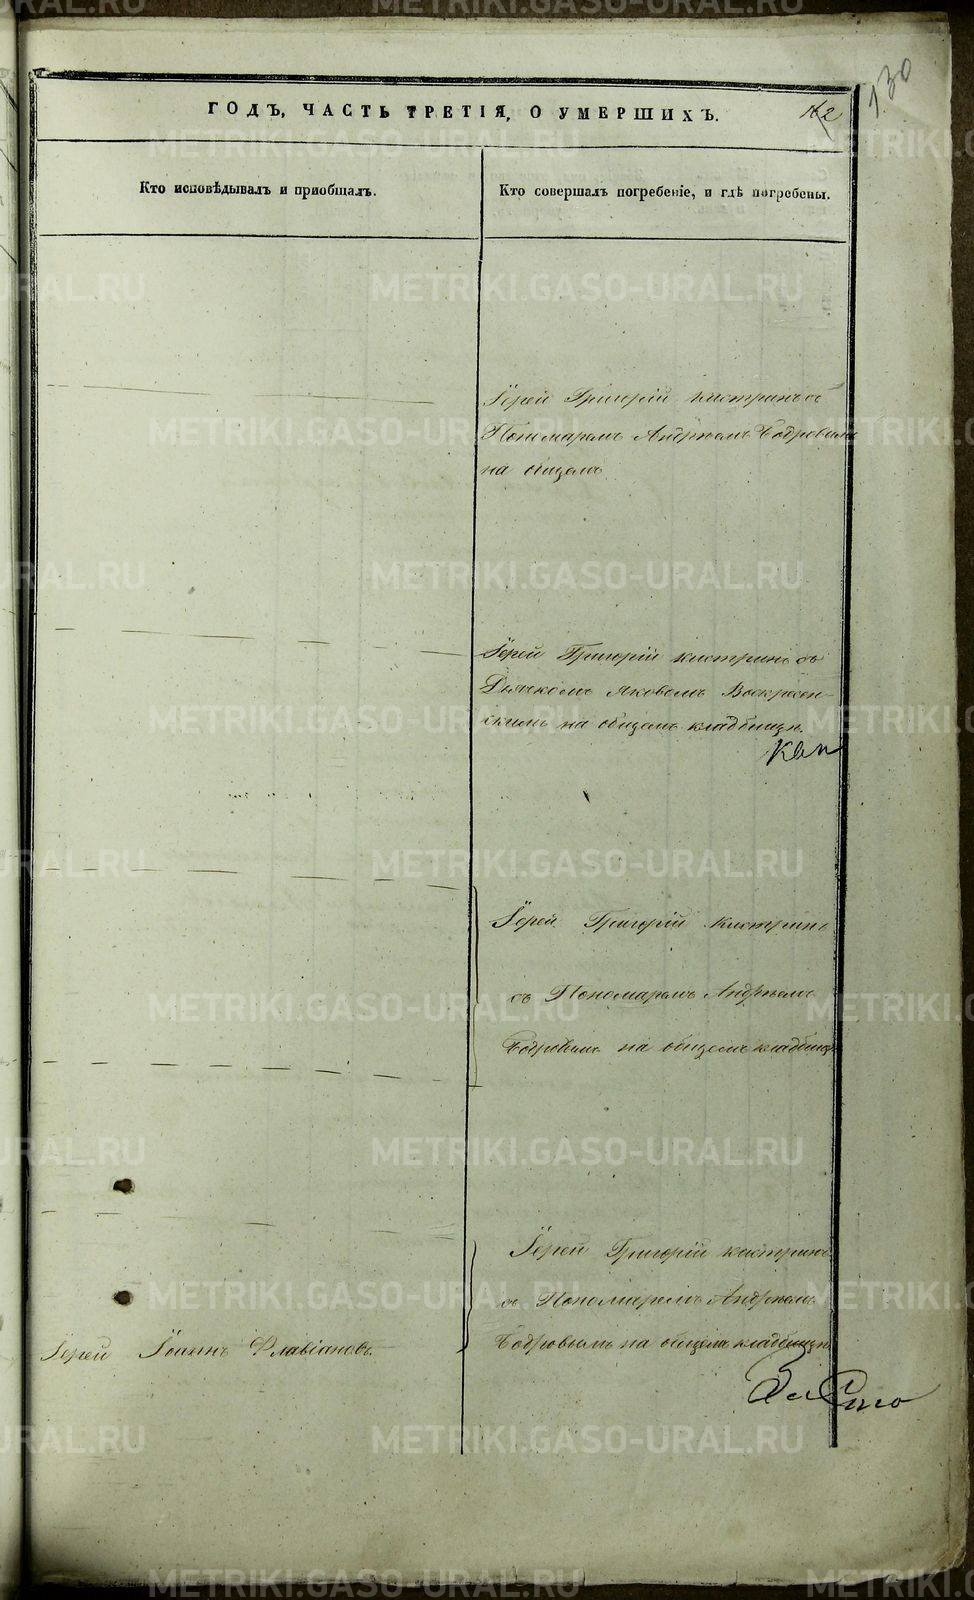 ГОДЪ, ЧАСТЬ ТРЕТІЯ, О УМЕРШИХЪ.
162
130
Кто исповѣдывалъ и приобщалъ.
Кто совершалъ погребеніе, и гдѣ погребены.
Іерей Григорій Кистринъ съ
Пономаремъ Андреемъ Бодровымъ
на общемъ
Іерей Григорій Кистринъ съ
Дьячкомъ Яковомъ Воскресен-
скимъ на общемъ кладбищѣ.
Іерей Григорій Кистринъ
съ Пономаремъ Андреемъ
Бодровымъ на общемъ кладбищѣ
Іерей Григорій Кистринъ
съ Пономаремъ Андреемъ
Бодровымъ на общемъ кладбищѣ
Іерей Іоаннъ Флавіановъ.
METRIKI.GASO-URAL.RU